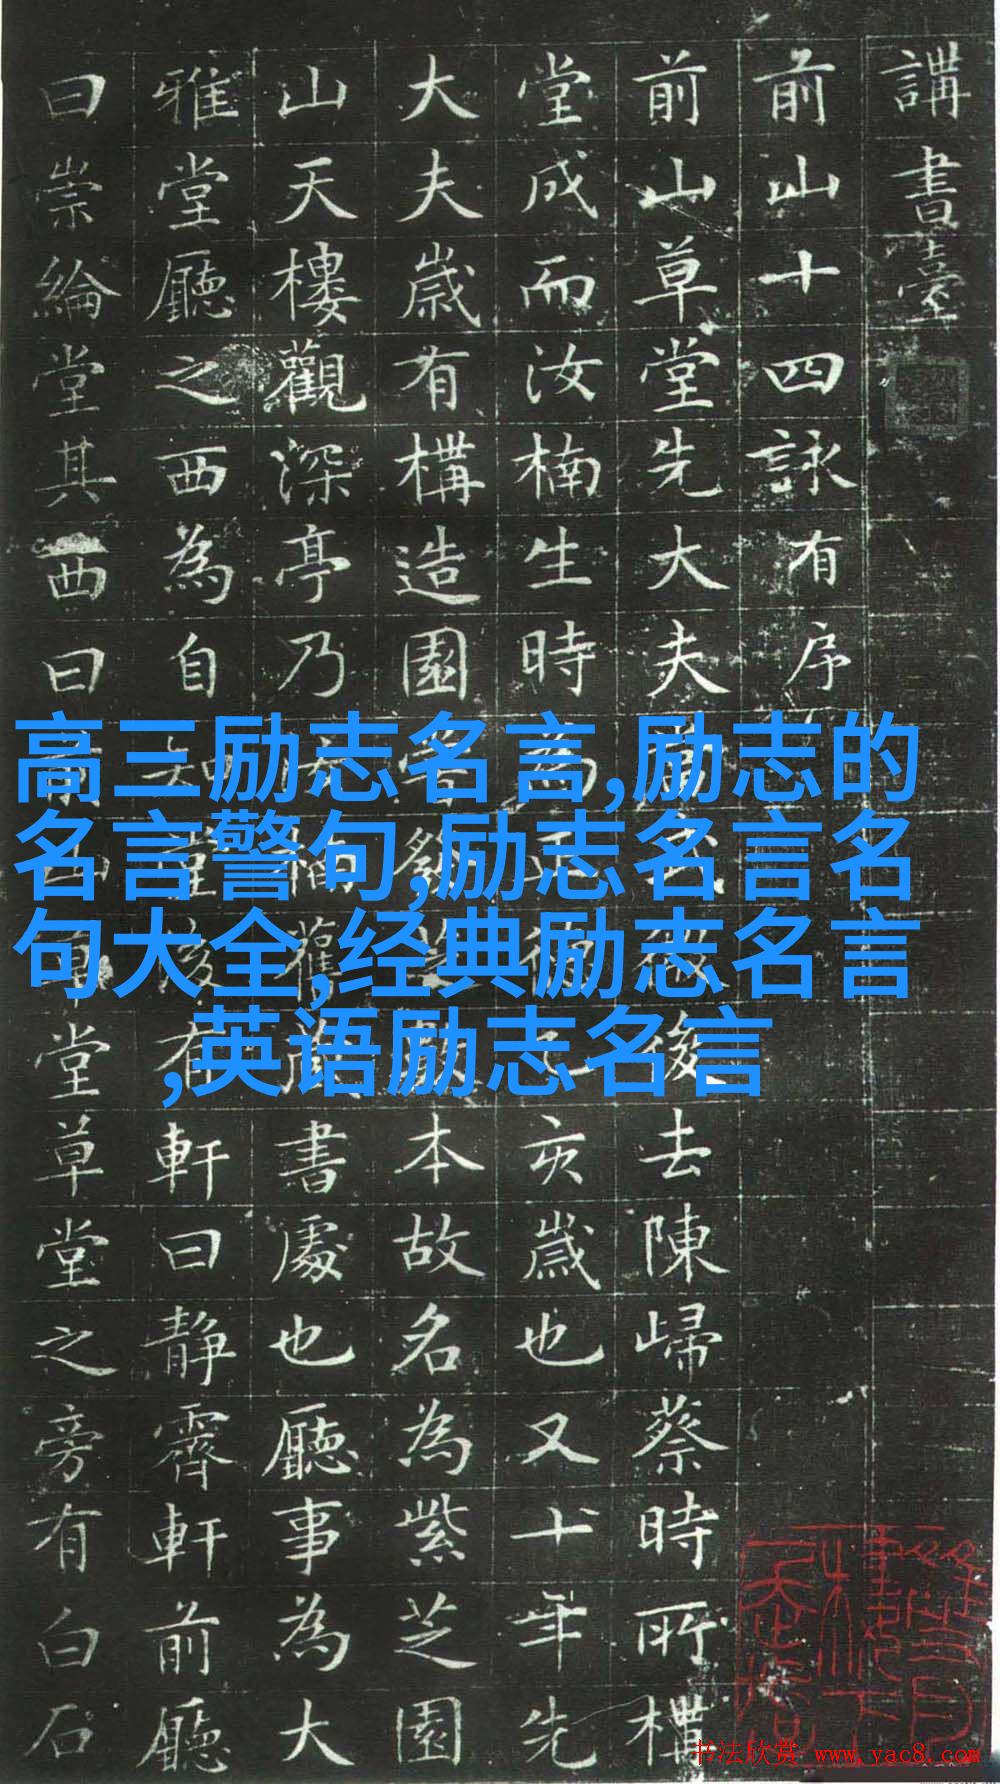 講書臺
前山十四詠有序
前山草堂先大夫去陳歸蔡時所
堂成而汝楠生時亥歲也又十年先
大夫歲有構造園本故名為紫芝園
山天樓觀深亭乃書處也廳事為大
雅堂廳之西為自有軒曰静霽軒前廳
曰崇綸堂其西曰堂草堂之旁有白石
高三励志名言,励志的
名言警句,励志名言名
句大全,经典励志名言
,英语励志名言
书法欣赏 www.yac8.com